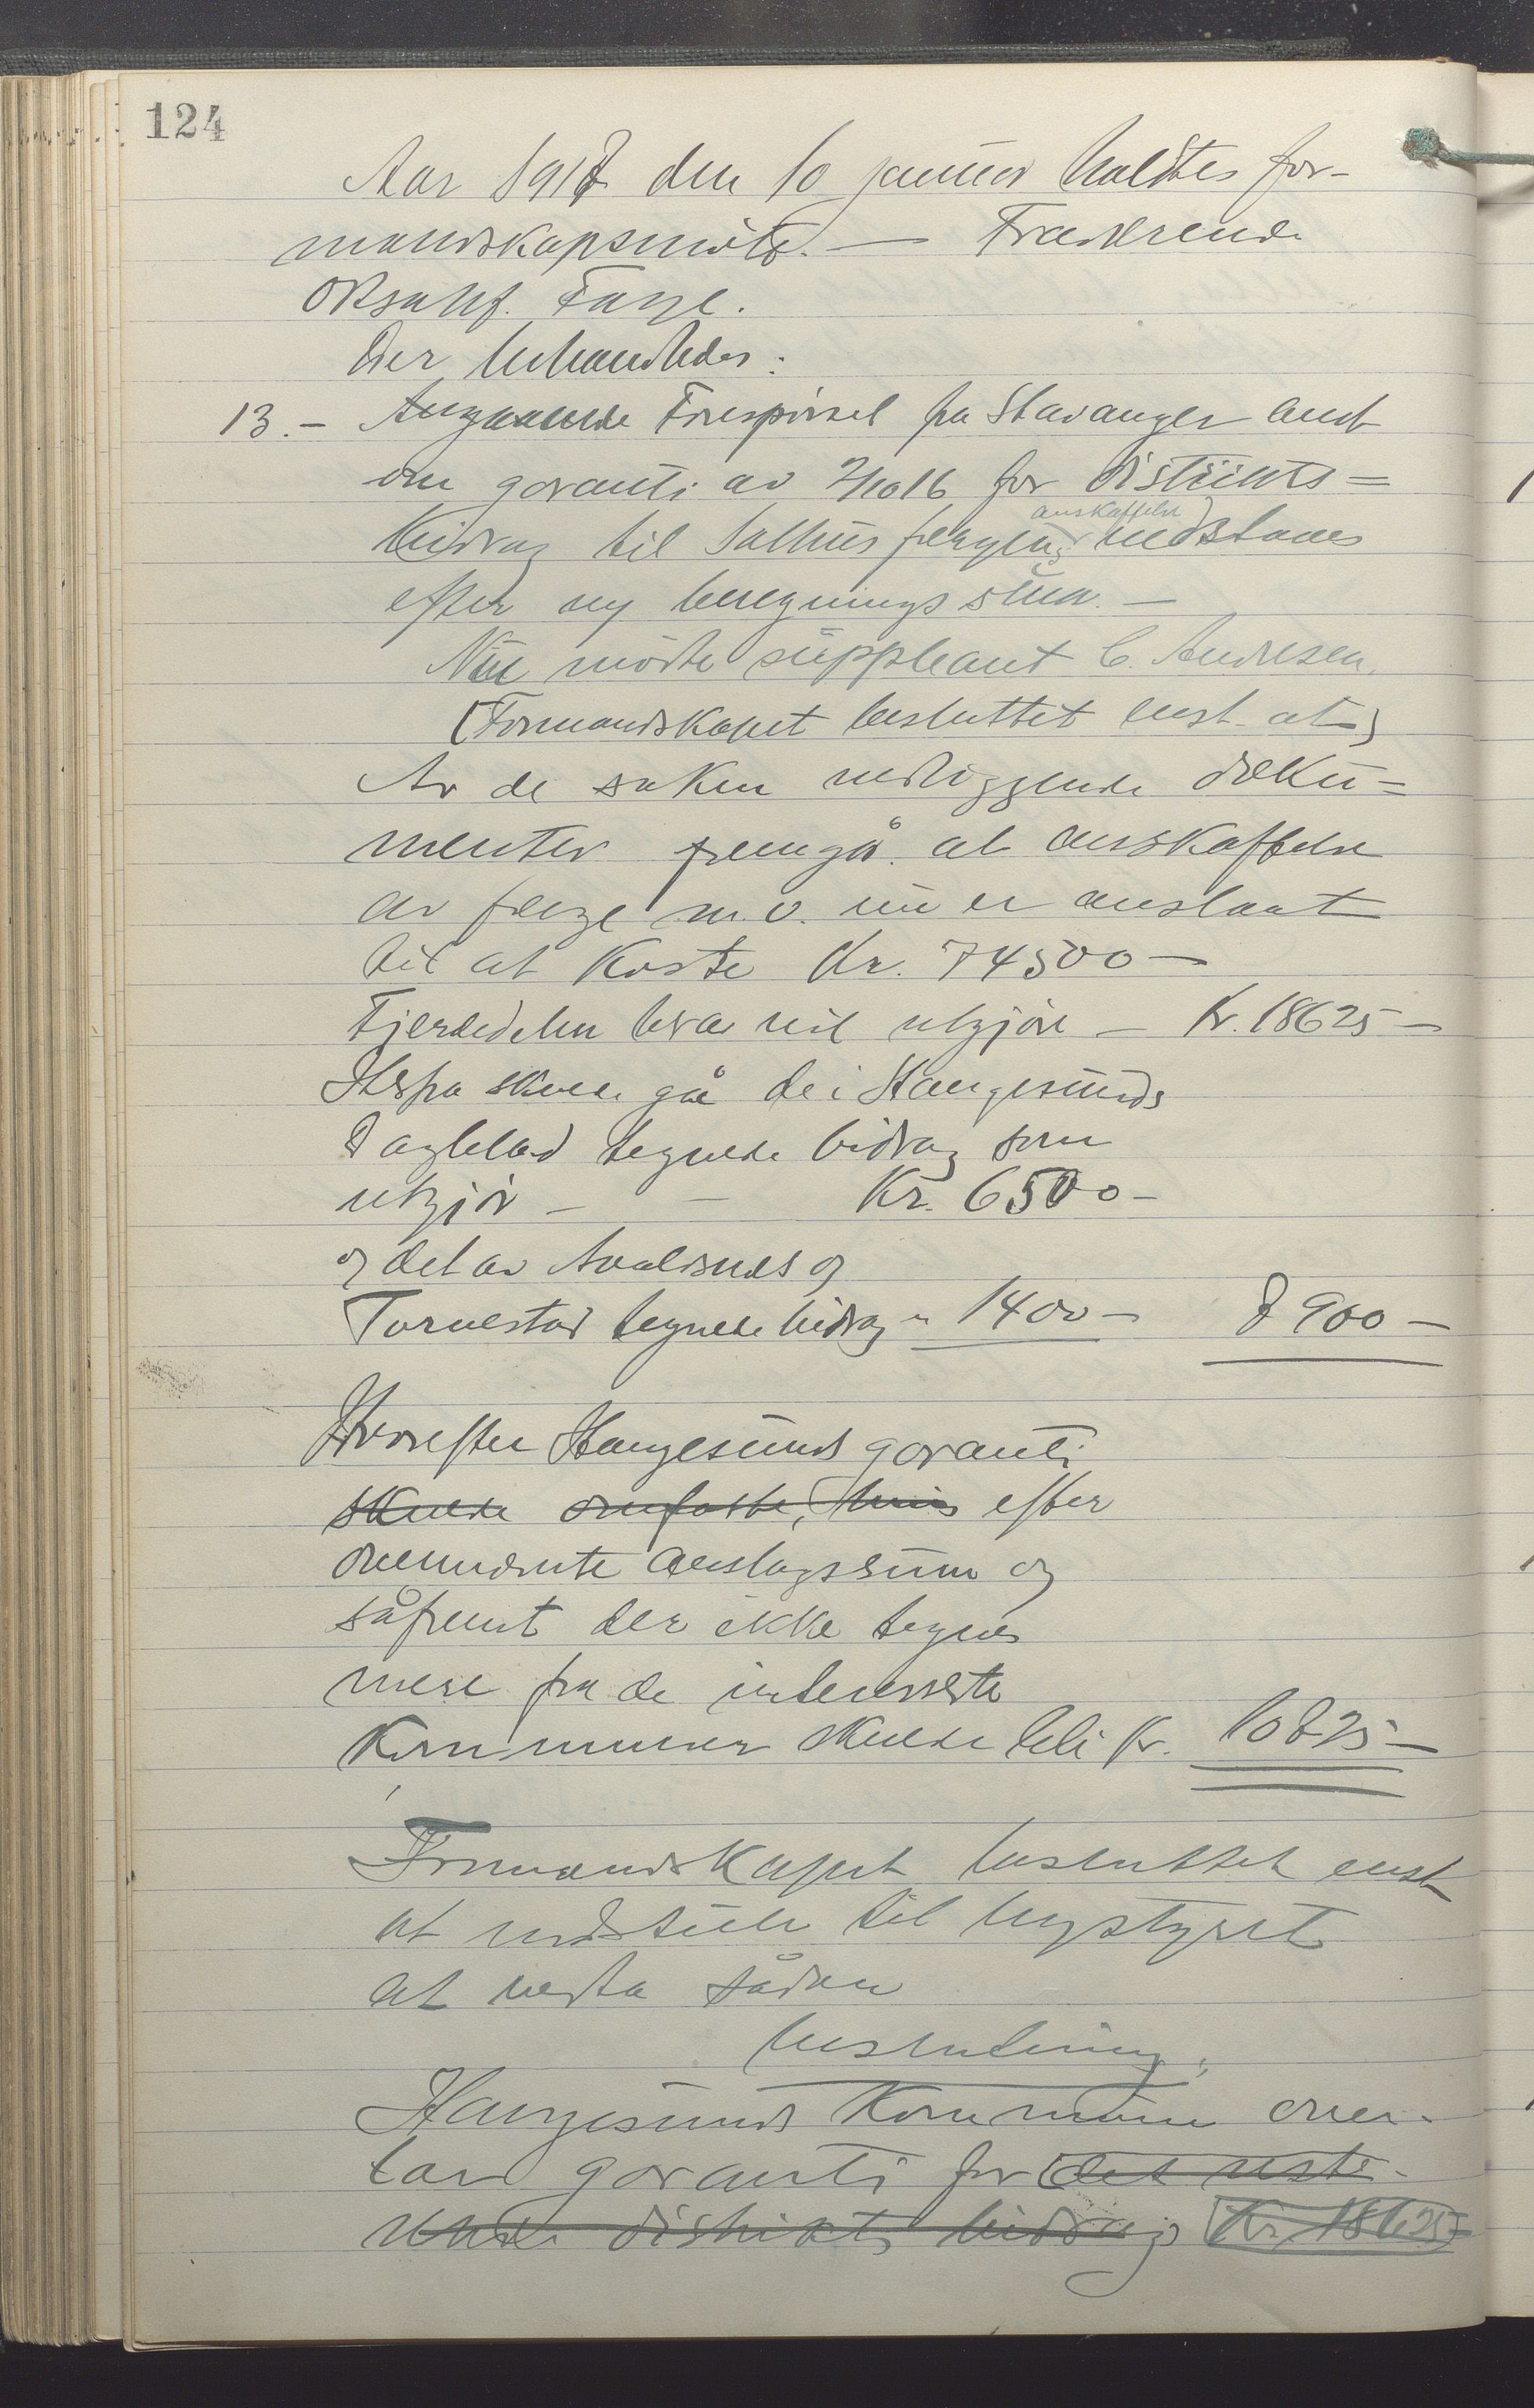 124
Aar 1917 den 10 januar holdtes for-
mandskapsmöte. — Fraværende
Oksahf. Fage.
Der behandledes:
13. – Angaaende Forespörsel fra Stavanger amt
om garanti av 2/10 16 for distrikts=
anskaffelse
bidrag til Salhusfærgens
efter ny beregningssum. —
Nu mötte suppleant C. Andresen.
(Formandskapet besluttet enst. at)
Av de saken vedliggende doku=
menter fremgår at anskaffelse
av færge m.v. nu er anslaat
til at koste Kr. 74500 —
Fjerdedelen herav vil utgjöre — Kr. 18625 —
Herfra skulde gå de i Haugesunds
Dagblad tegnede bidrag som
utgjör — — Kr. 6500 –
og det av Avaldsnes og
Torvestad tegnede bidrag " 1400 – 7900 —
Hvorefter Haugesunds garanti
skulde omfatte, hvis efter
ovennævnte anslagssum og
såfremt der ikke tegnes
mere fra de interesserte
kommuner skulde bli Kr. 10725 —
Formandskapet besluttet enst.
at indstille til bystyret
at vedta sådan
beslutning:
Haugesunds Kommune over-
tar garanti for det reste-
rende distriktsbidrag Kr. 18625 –